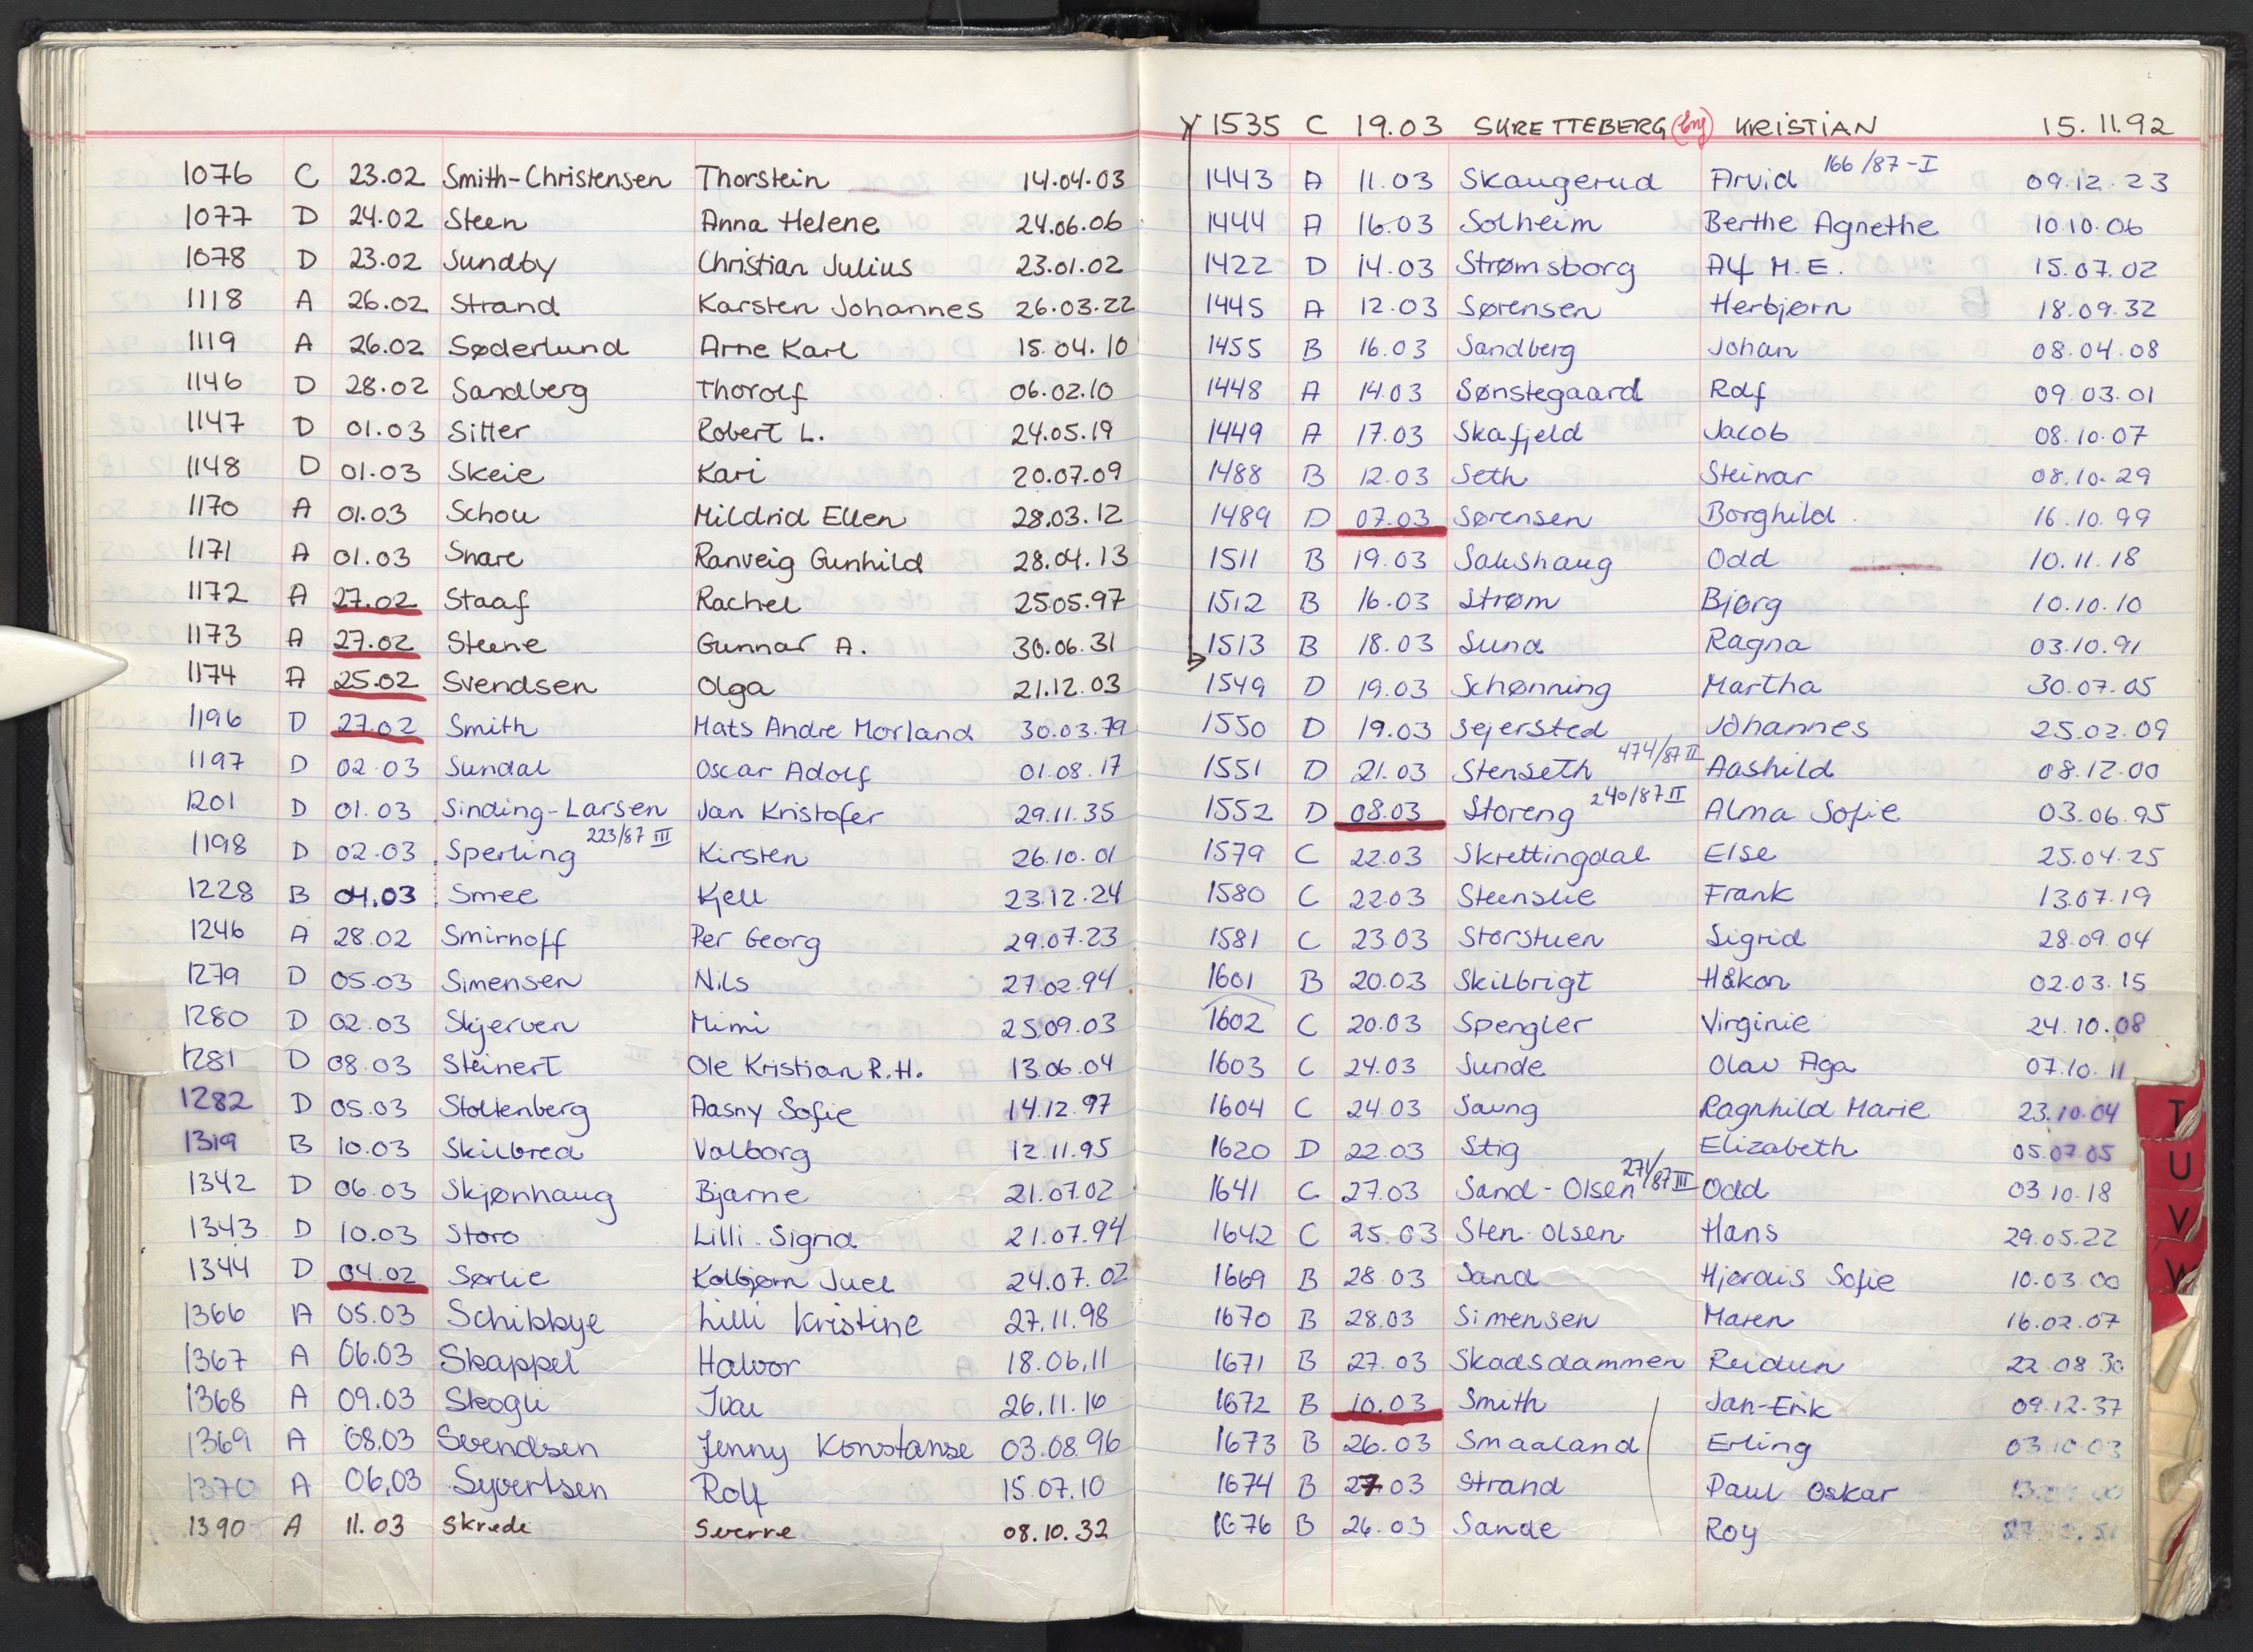 1076 C 23.02 Smith-Christensen Thorstein 14.04.03
1077 D 24.02 Steen Anna Helene 24.06.06
1078 D 23.02 Sundby Christian Julius 23.01.02
1118 A 26.02 Strand Karsten Johannes 26.03.22
1119 A 26.02 Søderlund Arne Karl 15.04.10
1146 D 28.02 Sandberg Thorolf 06.02.10
1147 D 01.03 Sitter Robert L. 24.05.19
1148 D 01.03 Skeie Kari 20.07.09
1170 A 01.03 Schou Mildrid Ellen 28.03.12
1171 A 01.03 Snare Ranveig Gunhild 28.04.13
1172 A 27.02 Staaf Rachel 25.05.97
1173 A 27.02 Steene Gunnar A. 30.06.31
1174 A 25.02 Svendsen Olga 21.12.03
1196 D 27.02 Smith Mats Andre Morland 30.03.79
1197 D 02.03 Sundal Oscar Adolf 01.08.17
1201 D 01.03 Sinding-Larsen Jan Kristofer 29.11.35
1198 D 02.03 Sperling 223/87 III Kirsten 26.10.01
1228 B 04.03 Smee Kjell 23.12.24
1246 A 28.02 Smirnoff Per Georg 29.07.23
1279 D 05.03 Simensen Nils 27.02.94
1280 D 02.03 Skjerven Mimi 25.09.03
1281 D 08.03 Steinert Ole Kristian R.H. 13.06.04
1282 D 05.03 Stoltenberg Aasny Sofie 14.12.97
1319 B 10.03 Skilbred Valborg 12.11.95
1342 D 06.03 Skjønhaug Bjarne 21.07.02
1343 D 10.03 Storo Lilli Sigrid 21.07.94
1344 D 04.02 Sørlie Kolbjørn Juel 24.07.02
1366 A 05.03 Schibbye Lilli Kristine 27.11.98
1367 A 06.03 Skappel Halvor 18.06.11
1368 A 09.03 Skogli Ivar 26.11.16
1369 A 08.03 Svendsen Jenny Konstanse 03.08.96
1370 A 06.03 Syvertsen Rolf 15.07.10
1390 A 11.03 Skrede Sverre 08.10.32
1535 C 19.03 SKRETTEBERG KRISTIAN 15.11.92
1443 A 11.03 Skaugerud Arvid 166/87-I 09.12.23
1444 A 16.03 Solheim Berthe Agnethe 10.10.06
1422 D 14.03 Strømsborg Alf M.E. 15.07.02
1445 A 12.03 Sørensen Herbjørn 18.09.32
1455 B 16.03 Sandberg Johan 08.04.08
1448 A 14.03 Sønstegaard Rolf 09.03.01
1449 A 17.03 Skafjeld Jacob 08.10.07
1488 B 12.03 Seth Steinar 08.10.29
1489 D 07.03 Sørensen Borghild 16.10.99
1511 B 19.03 Sakshaug Odd 10.11.18
1512 B 16.03 Strøm Bjørg 10.10.10
1513 B 18.03 Sund Ragna 03.10.91
1549 D 19.03 Schønning Martha 30.07.05
1550 D 19.03 Sejersted Johannes 25.02.09
1551 D 21.03 Stenseth 474/87 II Aashild 08.12.00
1552 D 08.03 Storeng 240/87 II Alma Sofie 03.06.95
1579 C 22.03 Skrettingdal Else 25.04.25
1580 C 22.03 Steenslie Frank 13.07.19
1581 C 23.03 Storstuen Sigrid 28.09.04
1601 B 20.03 Skilbrigt Håkon 02.03.15
1602 C 20.03 Spengler Virginie 24.10.08
1603 C 24.03 Sunde Olav Aga 07.10.11
1604 C 24.03 Saung Ragnhild Marie 23.10.04
1620 D 22.03 Stig Elizabeth 05.07.05
1641 C 27.03 Sand-Olsen 271/87 III Odd 03.10.18
1642 C 25.03 Sten Olsen Hans 29.05.22
1669 B 28.03 Sand Hjørdis Sofie 10.03.00
1670 B 28.03 Simensen Maren 16.02.07
1671 B 27.03 Skadsdammen Reidun 22.08.30
1672 B 10.03 Smith Jan-Erik 09.12.37
1673 B 26.03 Smaaland Erling 03.10.03
1674 B 27.03 Strand Paul Oskar
1676 B 26.03 Sande Roy
T
U
V
W